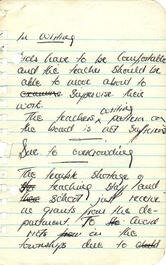 In Writing
have to be comfortable
and the teacher should be
able to move about to
examine supervise their
work.
The teachers writing pattern on
the board is not
Due to overcrowding
The terrible shortage of
teaching staff and
school just receive
as grants from the de-
partment. To avoid
riots on the
townships due to